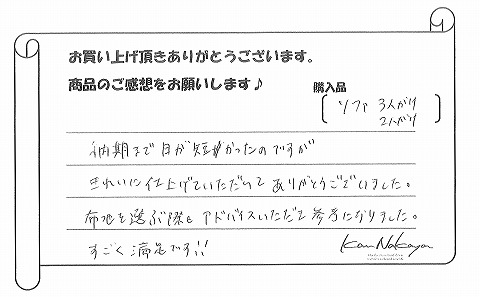 お買い上げ頂きありがとうございます。
商品のご感想をお願いします♪
購入品
ソファ 3人がけ
2人がけ
納期まで日が短かったのですが
きれいに仕上げていただいて ありがとうございました。
布地を選ぶ際も アドバイスいただき 参考になりました。
すごく満足です!!
Kan Nakaya